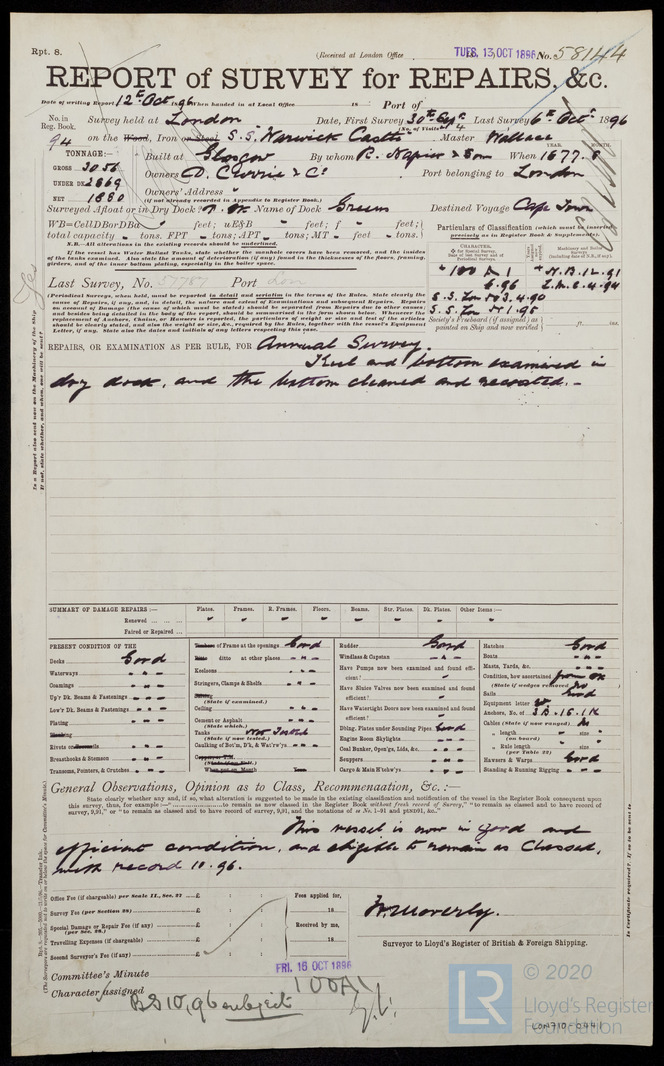 Rpt. 8.
(Received at London Office TUES. 13 OCT 1896 No. 58144
REPORT of SURVEY for REPAIRS, &c.
Date of writing Report 12th Oct 96 When handed in at Local Office 18 Port of
No. in Reg. Book. 94
Survey held at London Date, First Survey 30th Sept Last Survey 6th Oct 1896
(No. of Visits 4
on the Wood, Iron or Steel S.S. Warwick Castle Master Wallace
TONNAGE:—
GROSS 3056
UNDER DK 2869
NET 1880
Built at Glasgow By whom R. Napier & Son When 1877. 8
YEAR. MONTH.
Owners D. Currie & Co Port belonging to London
Owners' Address
(if not already recorded in Appendix to Register Book.)
Surveyed Afloat or in Dry Dock? Name of Dock Green Destined Voyage Cape Town
WB=CellDBorDBa feet; uE&B feet; f feet;
total capacity tons. FPT tons; APT tons; MT feet tons.
N.B.—All alterations in the existing records should be underlined.
If the vessel has Water Ballast Tanks, state whether the manhole covers have been removed, and the insides of the tanks examined. Also state the amount of deterioration (if any) found in the thicknesses of the floors, framing, girders, and of the inner bottom plating, especially in the boiler space.
Particulars of Classification (which must be inserted precisely as in Register Book & Supplements).
+ 100 A 1
6.96
S.S. Lon No 3.4.90
S.S. Lon No 1.95
+ N.B. 12.91
L.M.C. 4.94
Society's Freeboard (if assigned) as painted on Ship and now verified ft. ins.
Last Survey, No. Port
(Periodical Surveys, when held, must be reported in detail and seriatim in the terms of the Rules. State clearly the cause of Repairs, if any, and, in detail, the nature and extent of Examinations and subsequent Repairs. Repairs on account of Damage (the cause of which must be stated) should be separated from Repairs due to other causes; and besides being detailed in the body of the report, should be summarised in the form shown below. Whenever the replacement of Anchors, Chains, or Hawsers is reported, the particulars of weight or size and test of the articles should be clearly stated, and also the weight or size, &c., required by the Rules, together with the vessel's Equipment Letter, if any. State also the dates and initials of any letters respecting this case.)
REPAIRS, OR EXAMINATION AS PER RULE, FOR Annual Survey.
Keel and bottom examined in
dry dock, and the bottom cleaned and recoated.-
Is a Report also sent now on the Machinery of the Ship
If not, state whether, and when, one will be sent? Yes
SUMMARY OF DAMAGE REPAIRS:— Plates. Frames. R. Frames. Floors. Beams. Str. Plates. Dk. Plates. Other Items:—
Renewed
Faired or Repaired
PRESENT CONDITION OF THE
Decks Good
Waterways
Coamings
Up'r Dk. Beams & Fastenings
Low'r Dk. Beams & Fastenings
Plating
Planking
Rivets or Treenails
Breasthooks & Stemson
Transoms, Pointers, & Crutches
Timbers of Frame at the openings Good
Ditto ditto at other places
Keelsons
Stringers, Clamps & Shelfs
(State if examined.)
Ceiling
Cement or Asphalt
(State which.)
Tanks Not Tested
(State if now tested.)
Caulking of Bot'm, D'k, & Wat'rw'ys
When put on Month Year
Rudder Good
Windlass & Capstan
Have Pumps now been examined and found efficient?
Have Sluice Valves now been examined and found efficient?
Have Watertight Doors now been examined and found efficient?
Dbling. Plates under Sounding Pipes Good
Engine Room Skylights
Coal Bunker, Open'gs, Lids, &c.
Scuppers
Cargo & Main H'tchw'ys
Hatches Good
Boats
Masts, Yards, &c.
Condition, how ascertained from Dk
(State if wedges removed) No
Sails Good
Equipment letter
Anchors, No. of 3B.1S.1K
Cables (State if now ranged) No
length size
(on board)
Rule length size
(per Table 22)
Hawsers & Warps Good
Standing & Running Rigging
General Observations, Opinion as to Class, Recommendation, &c.:—
State clearly whether any, and if so, what alteration is suggested to be made in the existing classification and notification of the vessel in the Register Book consequent upon this survey, thus, for example:—" to remain as now classed in the Register Book without fresh record of Survey," "to remain as classed and to have record of survey, 9,91," or "to remain as classed and to have record of survey, 9,91, and the notations of ss No. 1-91 and pt.ND91, &c."
This vessel is now in good and
efficient condition, and eligible to remain as Classed,
with record 10.96.
Office Fee (if chargeable) per Scale II., Sec. 27 £ : :
Survey Fee (per Section 28) £ : :
Special Damage or Repair Fee (if any) £ : :
(per Sec. 28.)
Travelling Expenses (if chargeable) £ : :
Second Surveyor's Fee (if any) £ : :
Fees applied for,
18
Received by me,
18
W Moverly.
Surveyor to Lloyd's Register of British & Foreign Shipping.
Committee's Minute FRI. 16 OCT 1896
Character assigned 100A1
BS 10,96 subject
Is Certificate required? If so, to be sent to
LR © 2020
Lloyd's Register
Foundation
LON710-0441